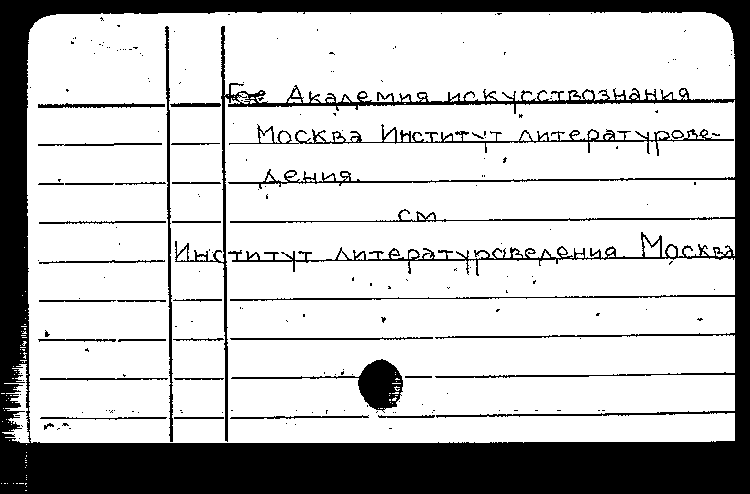 Академия искусствознания
Москва Институт литературове-
дения.
см.
Институт литературоведения. Москва